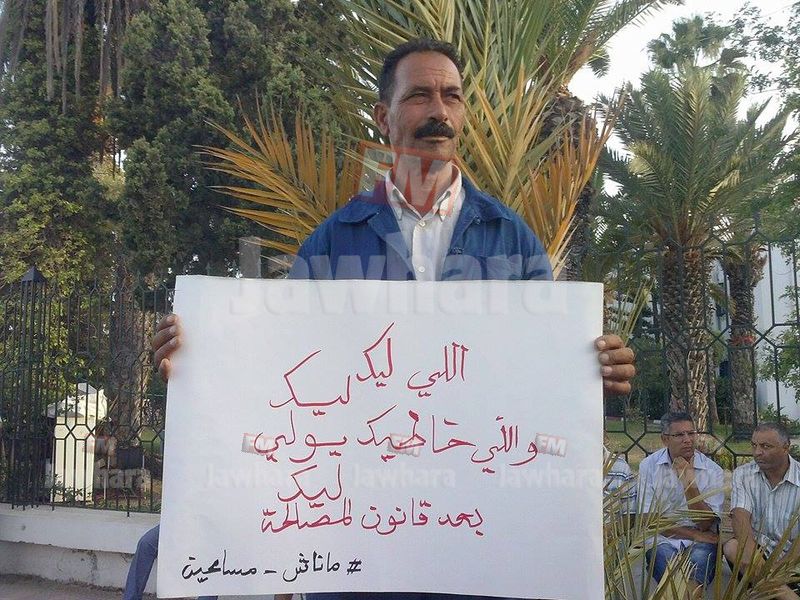 اللي ليك ليك
واللي خاطيك يولي
ليك
بعد قانون المصالحة
# ماناش - مسامحين
FM
Jawhara
FM
Jawhara
FM
Jawhara
FM
Jawhara